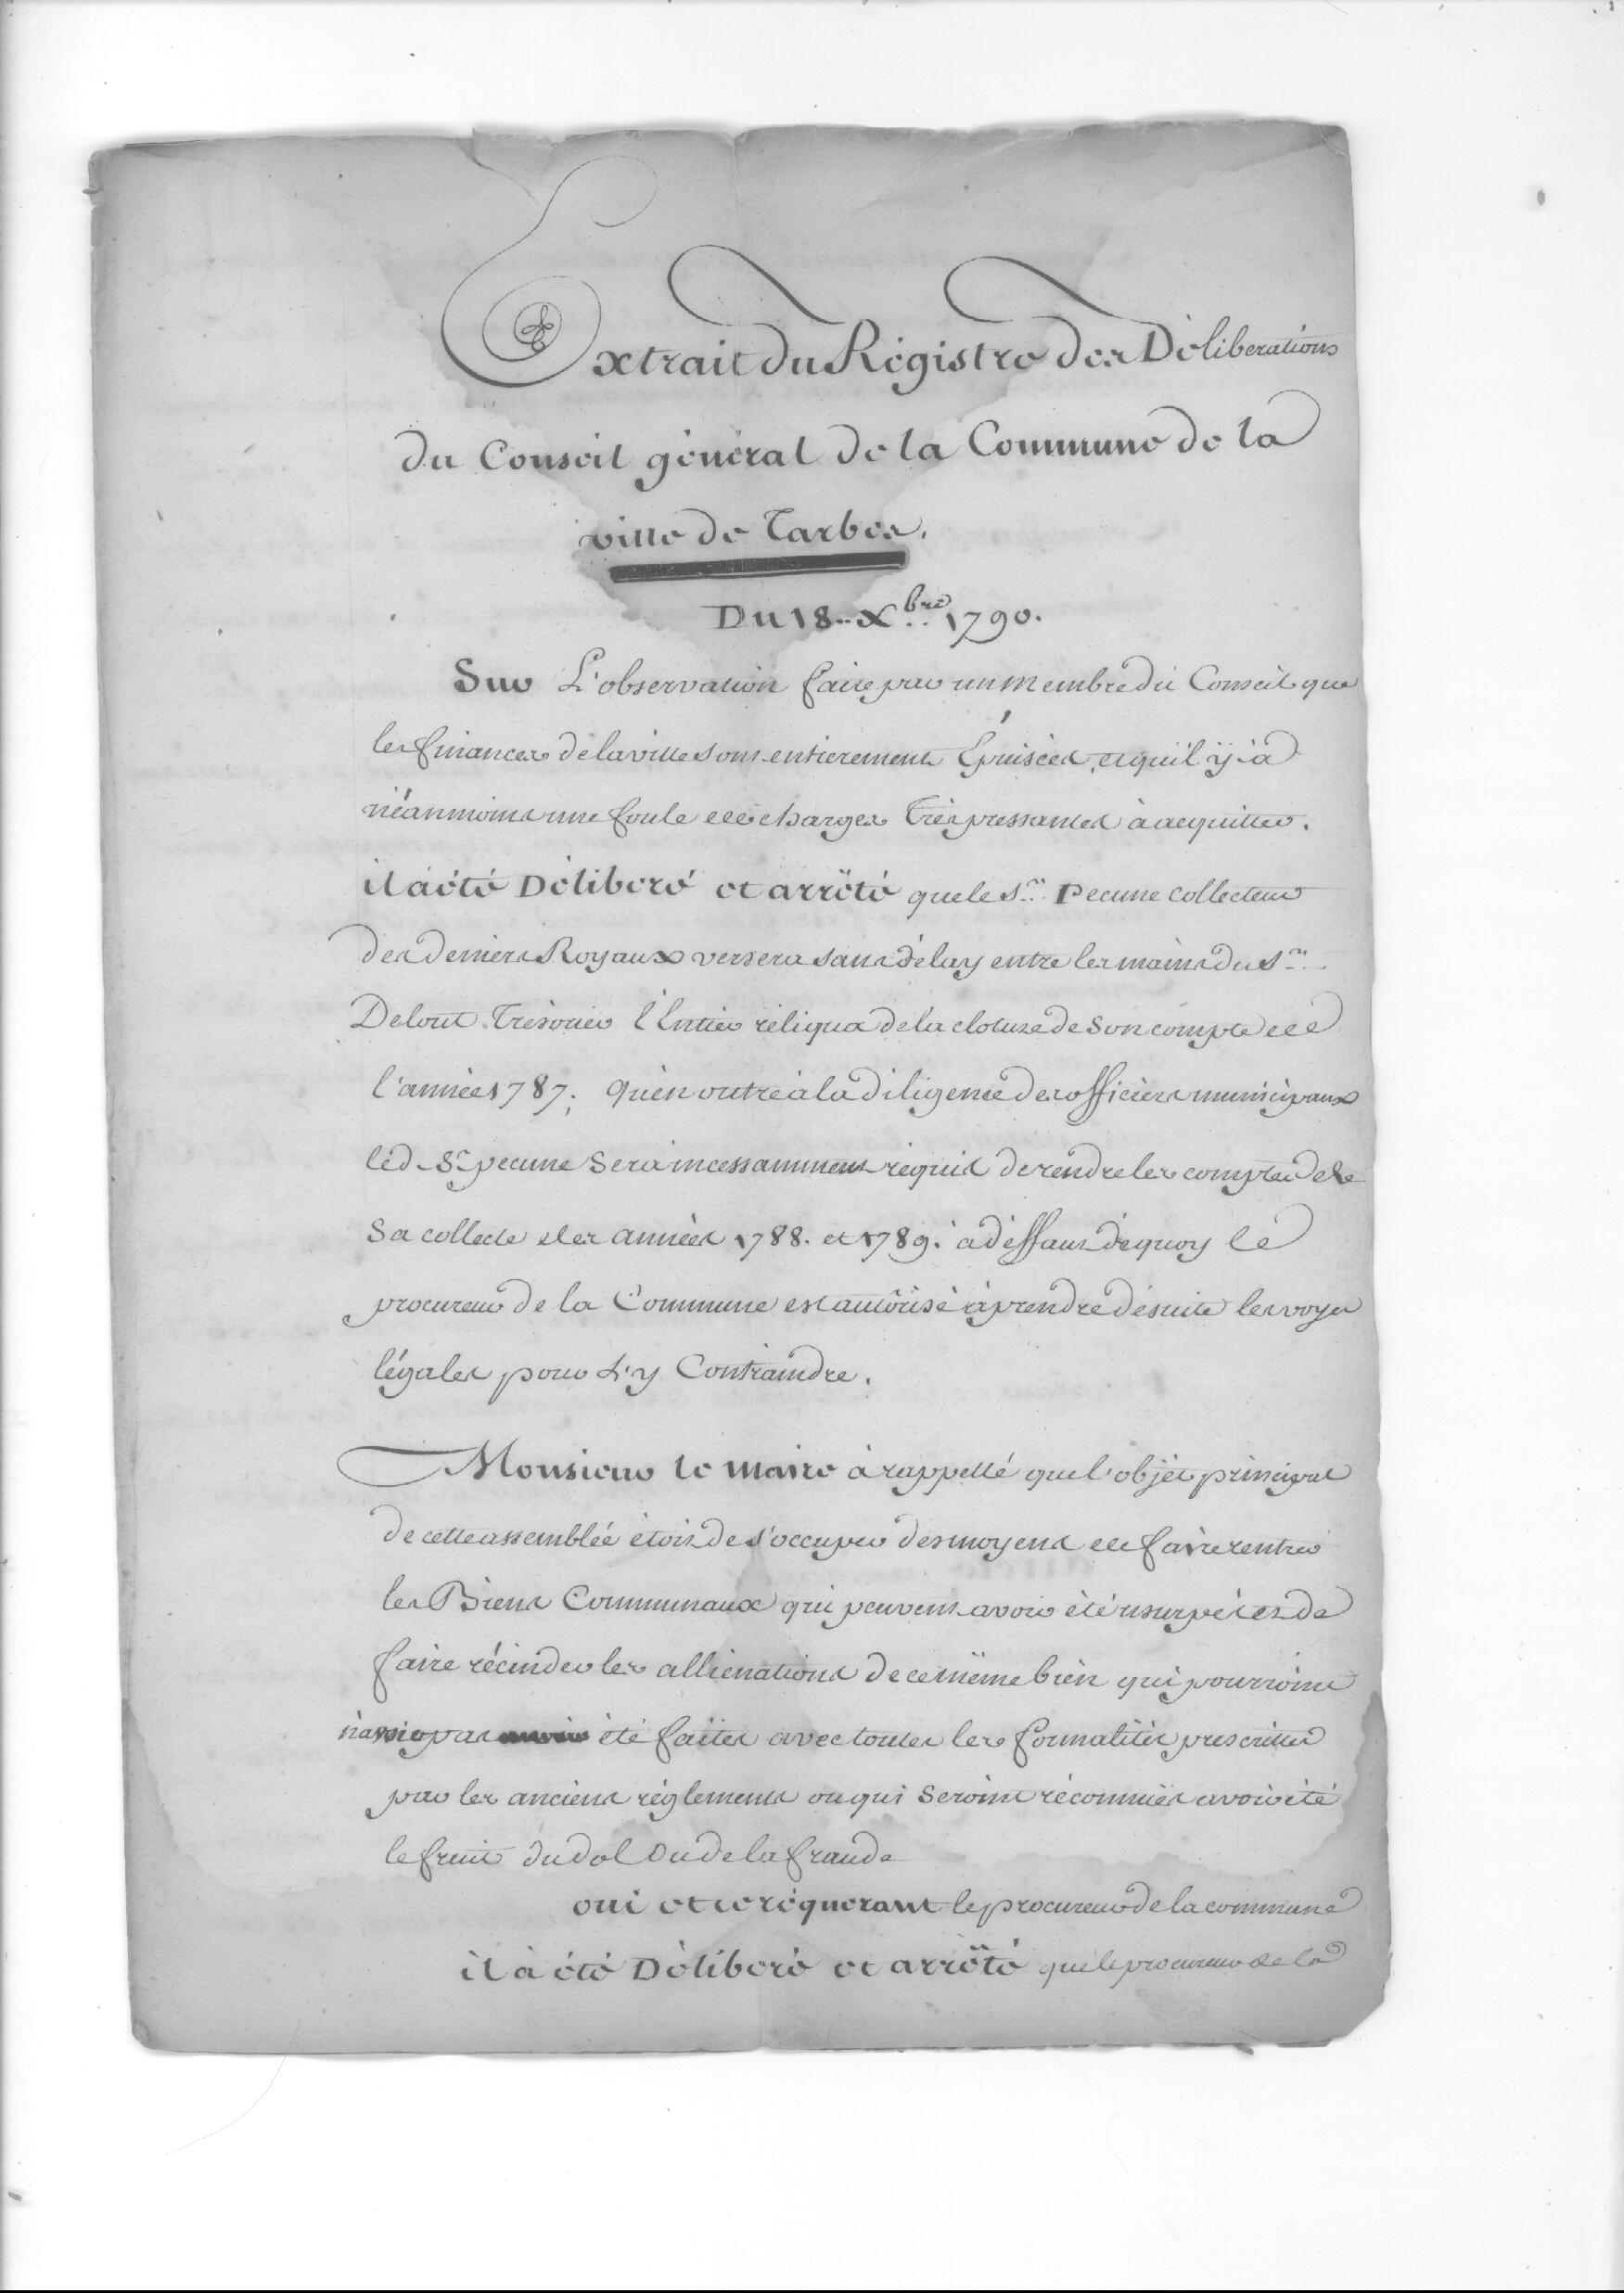 Extrait du Régistre des Déliberations
du Conseil général de la Commune de la
ville de Tarbes.
Du 18 Xbre 1790.
Sur L'observation faite par un membre du Conseil que
les finances de la ville sont entierement Épuisées, et qu'il ÿ a
néanmoins une foule de charges Très pressantes à acquitter.
il à été Déliberé et arrêté que le Sr. Pecune collecteur
des deniers Royaux versera sans délay entre les mains du Sr.
Delout Trésorier l'Entier réliqua de la cloture de son compte de
l'année 1787; qu'en outre à la diligence des officiers municipaux
led. Sr pecune sera incessamment réquis de rendre les comptes de
sa collecte des années 1788. et 1789. à déffaut dequoy le
procureur de la Commune est autôrisé à prendre désuite les voyes
légales pour L'y Contraindre.
Monsieur le maire à rappellé que l'objet principal
de cette assemblée étoit de s'occuper des moyens de faire rentrer
les Biens Communaux qui peuvent avoir été usurpés et de
faire récinder les alliénations de ce même bien qui pourroint
n'avoir pas été faites avec toutes les formalités prescrittes
par les anciens réglements ou qui seroint réconnues avoir été
le fruit du dol ou de la fraude
oui et ce réquerant le procureur de la commune
il à été Déliberé et arrêté que le procureur de la